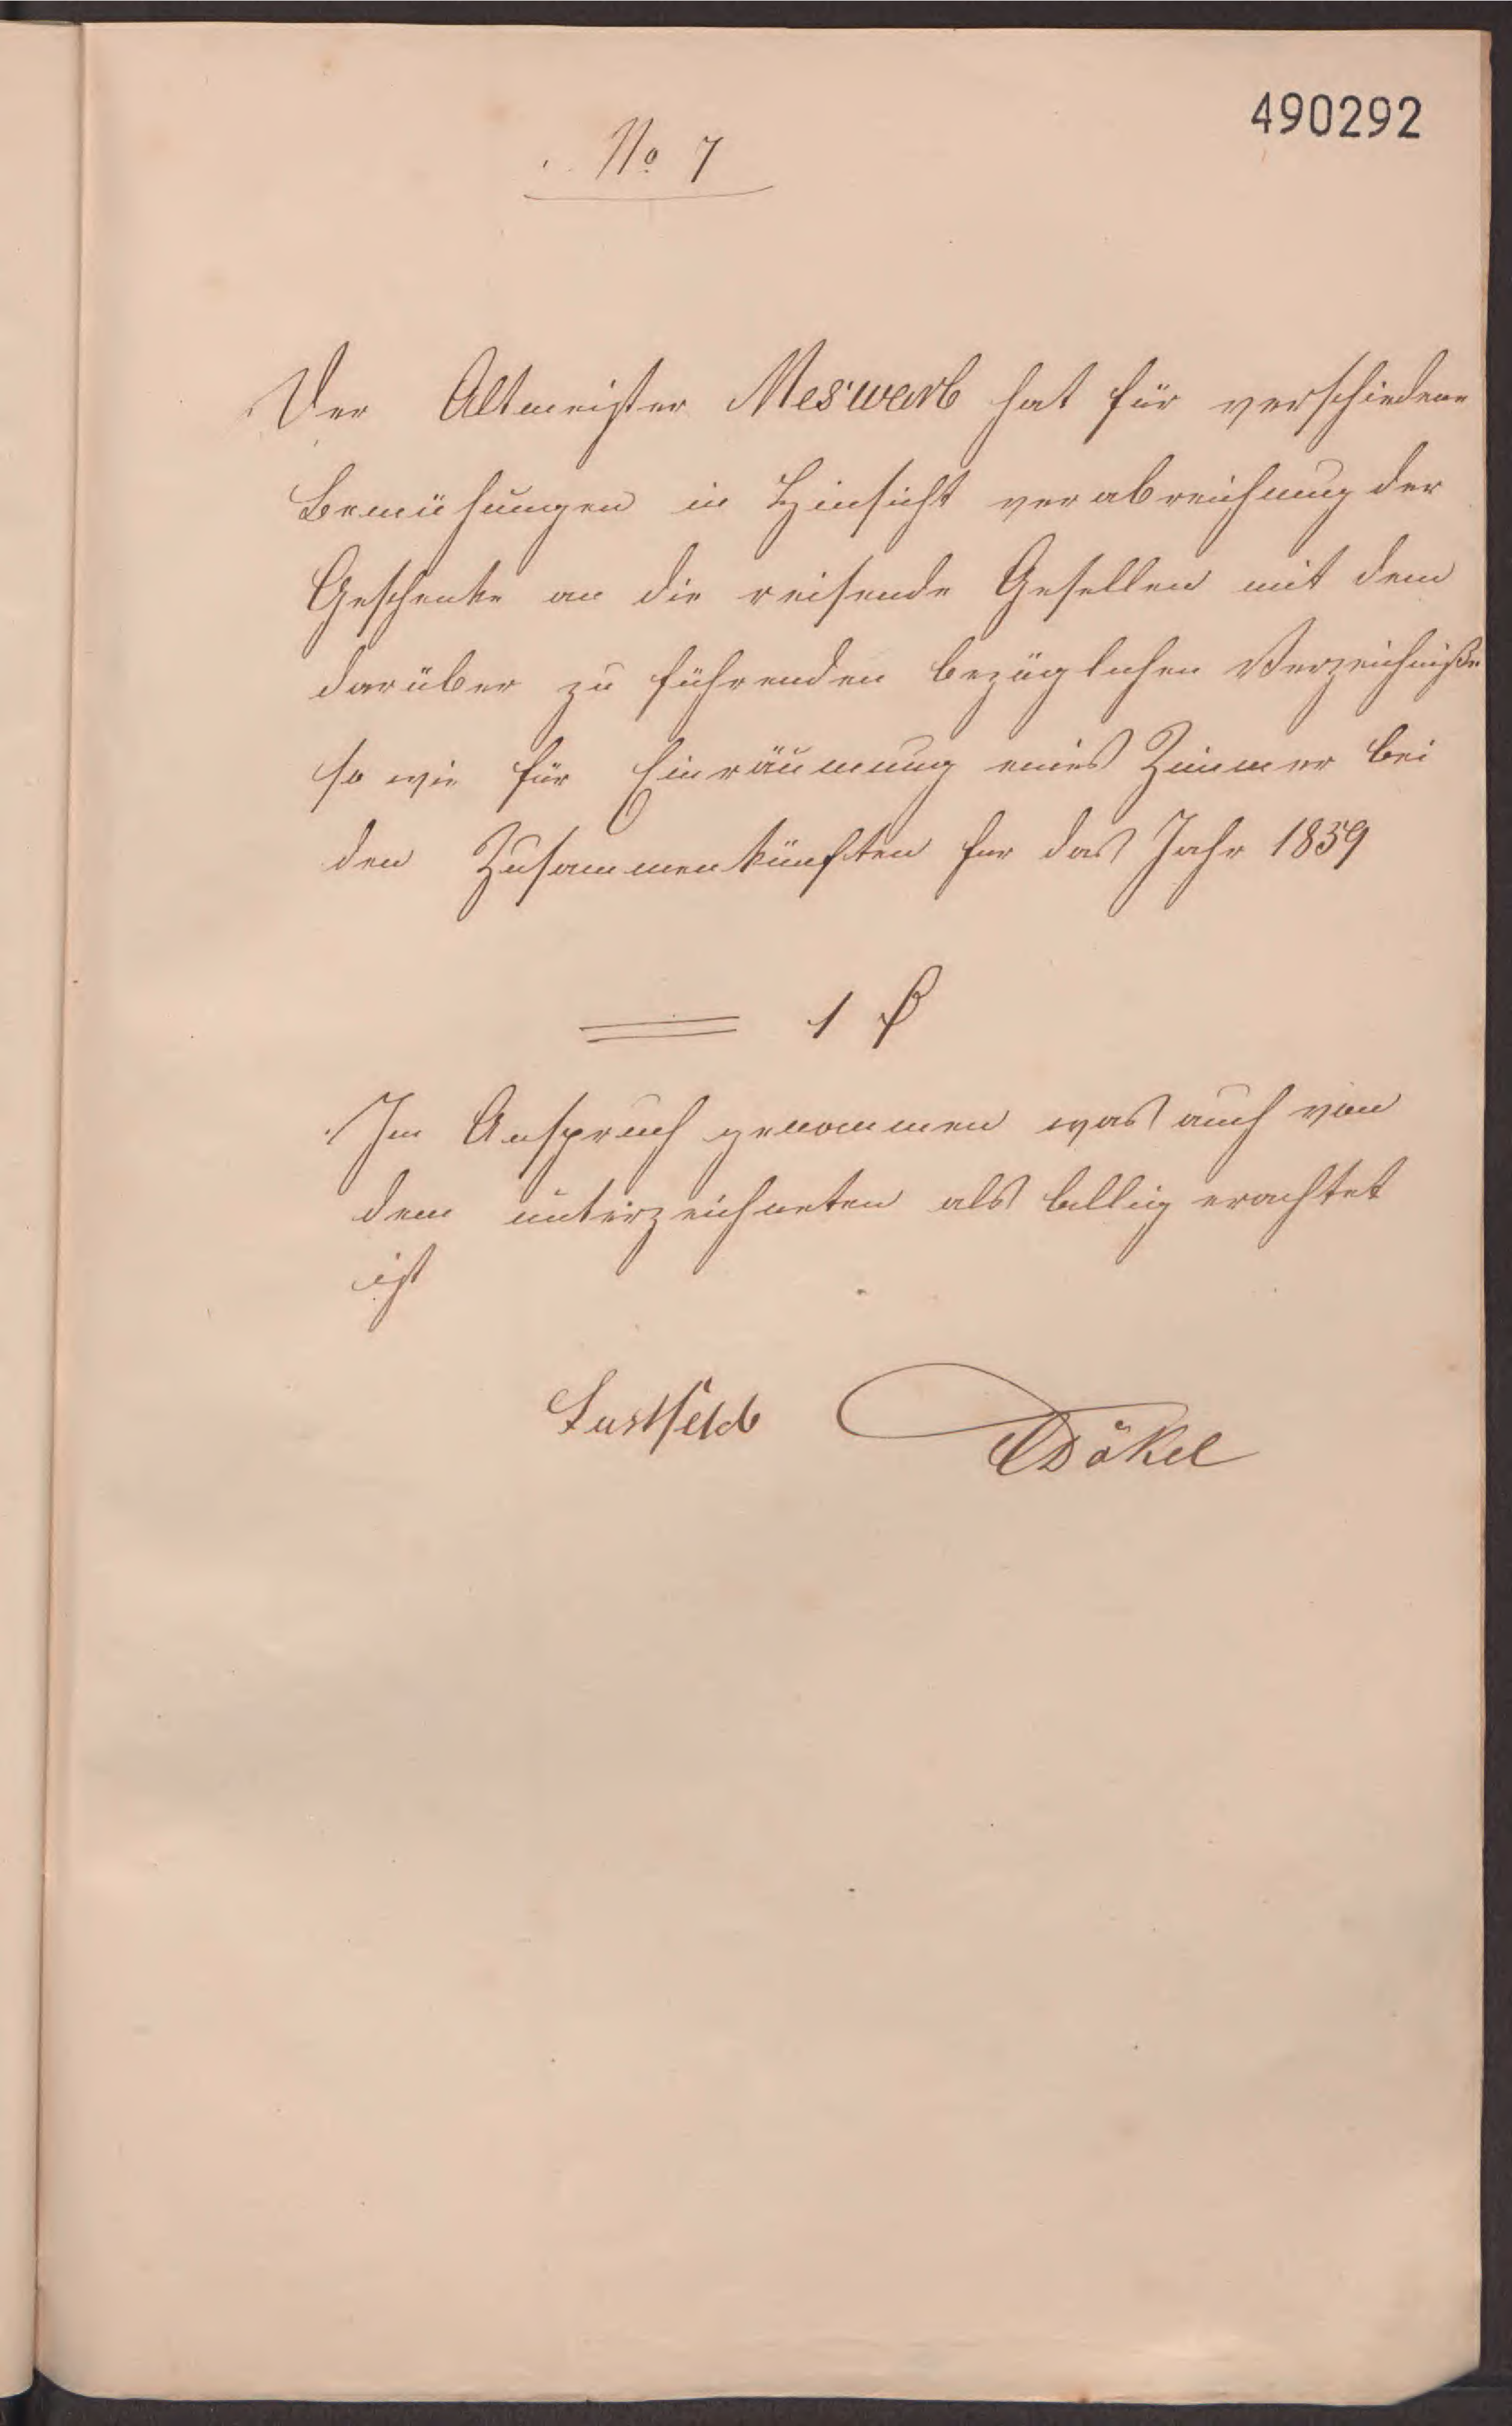 490292
No 7
Der Altmeister Meswarb hat für verschiedene
Bemühungen in Hinsicht verabreichung der
Geschenke an die reisende Gesellen mit dem
darüber zu führenden bezüglichen Verzeichniße
so wie für Einräumung eines Zimmer bei
den Zusammenkünften for das Jahr 1859
1 ₰
Im Anspruch genommen was auch von
dem unterzeichneten als billig erachtet
ist
Lustfeld Dökel